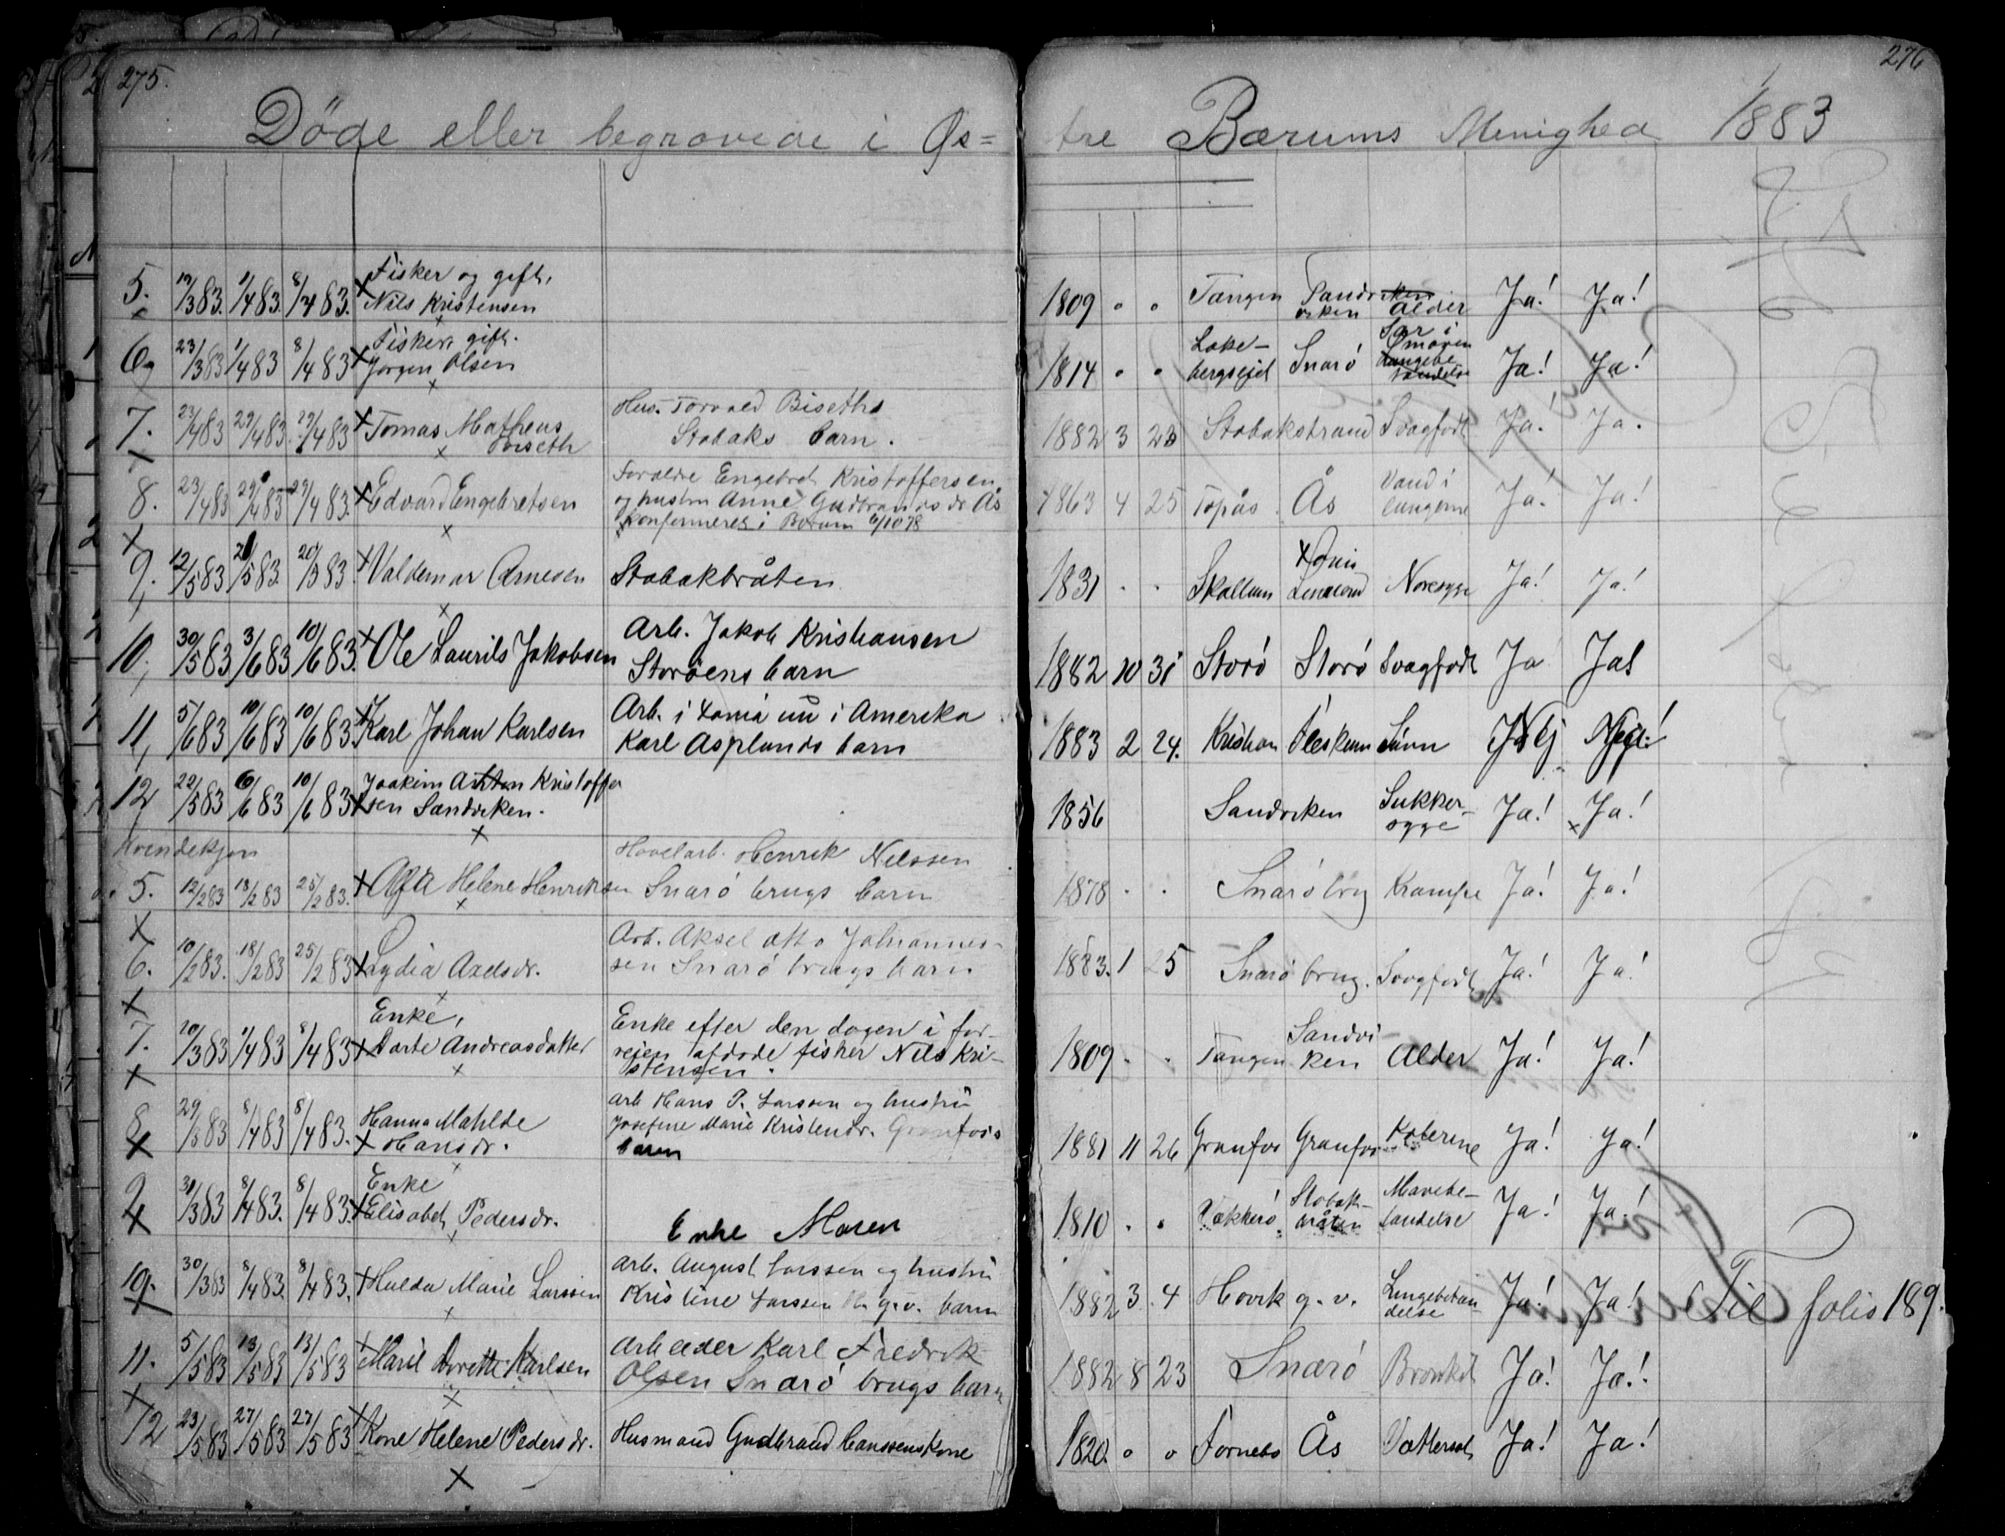 275.
276
Døde eller begravede i Øs=
tre Bærums Menighed 1883
5. 19/3 83. 1/4 83. 8/4 83. Fisker og gift,
Nils Kristensen
1809 Tangen Sandviken Alder Ja! Ja!
6. 23/3 83 1/4 83 8/4 83 Fisker, gift.
Jørgen Olsen
1814 Snarø Sår i Ja! Ja!
7. 23/4 83 29/4 83 29/4 83 Tomas Matheus
Biseth
Hus. Torvald Biseths
Stabaks barn.
1882 3 Stabakstrand Svagfødt Ja! Ja.
8. 23/4 83 29/4 83 29/4 83. Edvard Engebretsen
Foreldre Engebret Kristoffersen
og hustru Anne Gudbrandsdr Ås
konfirmeret i Bærum 6/10 78
1863 4 25 Topås. Ås Vand i
lungerne Ja! Ja!
9. 12/5 83 20/5 83 Valdemar Arnesen Stabakbråten
1831 Skallum Ja! Ja!
10, 30/5 83 3/6 83 10/6 83. Ole Laurits Jakobsen
Arb. Jakob Kristiansen
Storøens barn
1882 10 31 Storø Storø Svagfødt Ja Ja!
11, 5/6 83 10/6 83 10/6 83. Karl Johan Karlsen
Arb. i nu i Amerika
Karl Asplunds barn
1883 2 24. Kristian Fleskum Nej Nej!
12 22/5 83 6/6 83 10/6 83 Joakim Anton Kristoffer
sen Sandviken.
1856 Sandviken Sukker-
syge Ja! Ja!
Kvindekjøn
5. 12/2 83 18/2 83 25/2 83. Helene Henriksen
Høvelarb. Henrik Nilssen
Snarø brugs barn
1878 Snarø brug Krampe Ja! Ja!
6. 10/2 83. 18/2 83 25/2 83 Lydia Axelsdr.
Arb. Aksel Otto Johannes-
sen Snarø brugs barn
1883. 1 25 Snarø brug. Svagfødt Ja! Ja!
7. 20/3 83 1/4 83 8/4 83 Enke,
Dorte Andreasdatter
Enke efter den dagen i for-
veien afdøde fisker Nils Kri-
stensen.
1809 Tangen Sandvi-
ken Alder Ja! Ja!
8 8/4 83 8/4 83. Hanna Matilde
Hansdr.
Arb Hans P. Larssen og hustru
Josefine Marie Kristendr. Granfos
barn
1881 11 26 Granfos Granfos Ja! Ja!
9 31/3 83 8/4 83. 8/4 83. Enke
Elisabet Pedersdr.
Enke Maren
1810 Vækkerø Stabak-
bråten Mavebe-
tændelse Ja! Ja!
10. 30/3 83 8/4 83. 8/4 83. Hulda Marie Larssen
Arb. August Larssen og hustru
Kristine Larssen H. g.v. barn
1882 3 4 Høvik g.v. Lungebetæn-
delse Ja! Ja! Til folio 189.
11. 5/5 83 13/5 83 13/5 83 Marie Dorette Karlsen
Arbeider Karl Fredrik
Olsen Snarø brugs barn
1882 8 23 Snarø Bronkit Ja! Ja!
12 23/5 83 27/5 83 27/5 83 Kone Helene Pedersdr.
Husmand Gudbrand Hanssens kone
1820. Fornebo Ås Vattersot Ja! Ja!